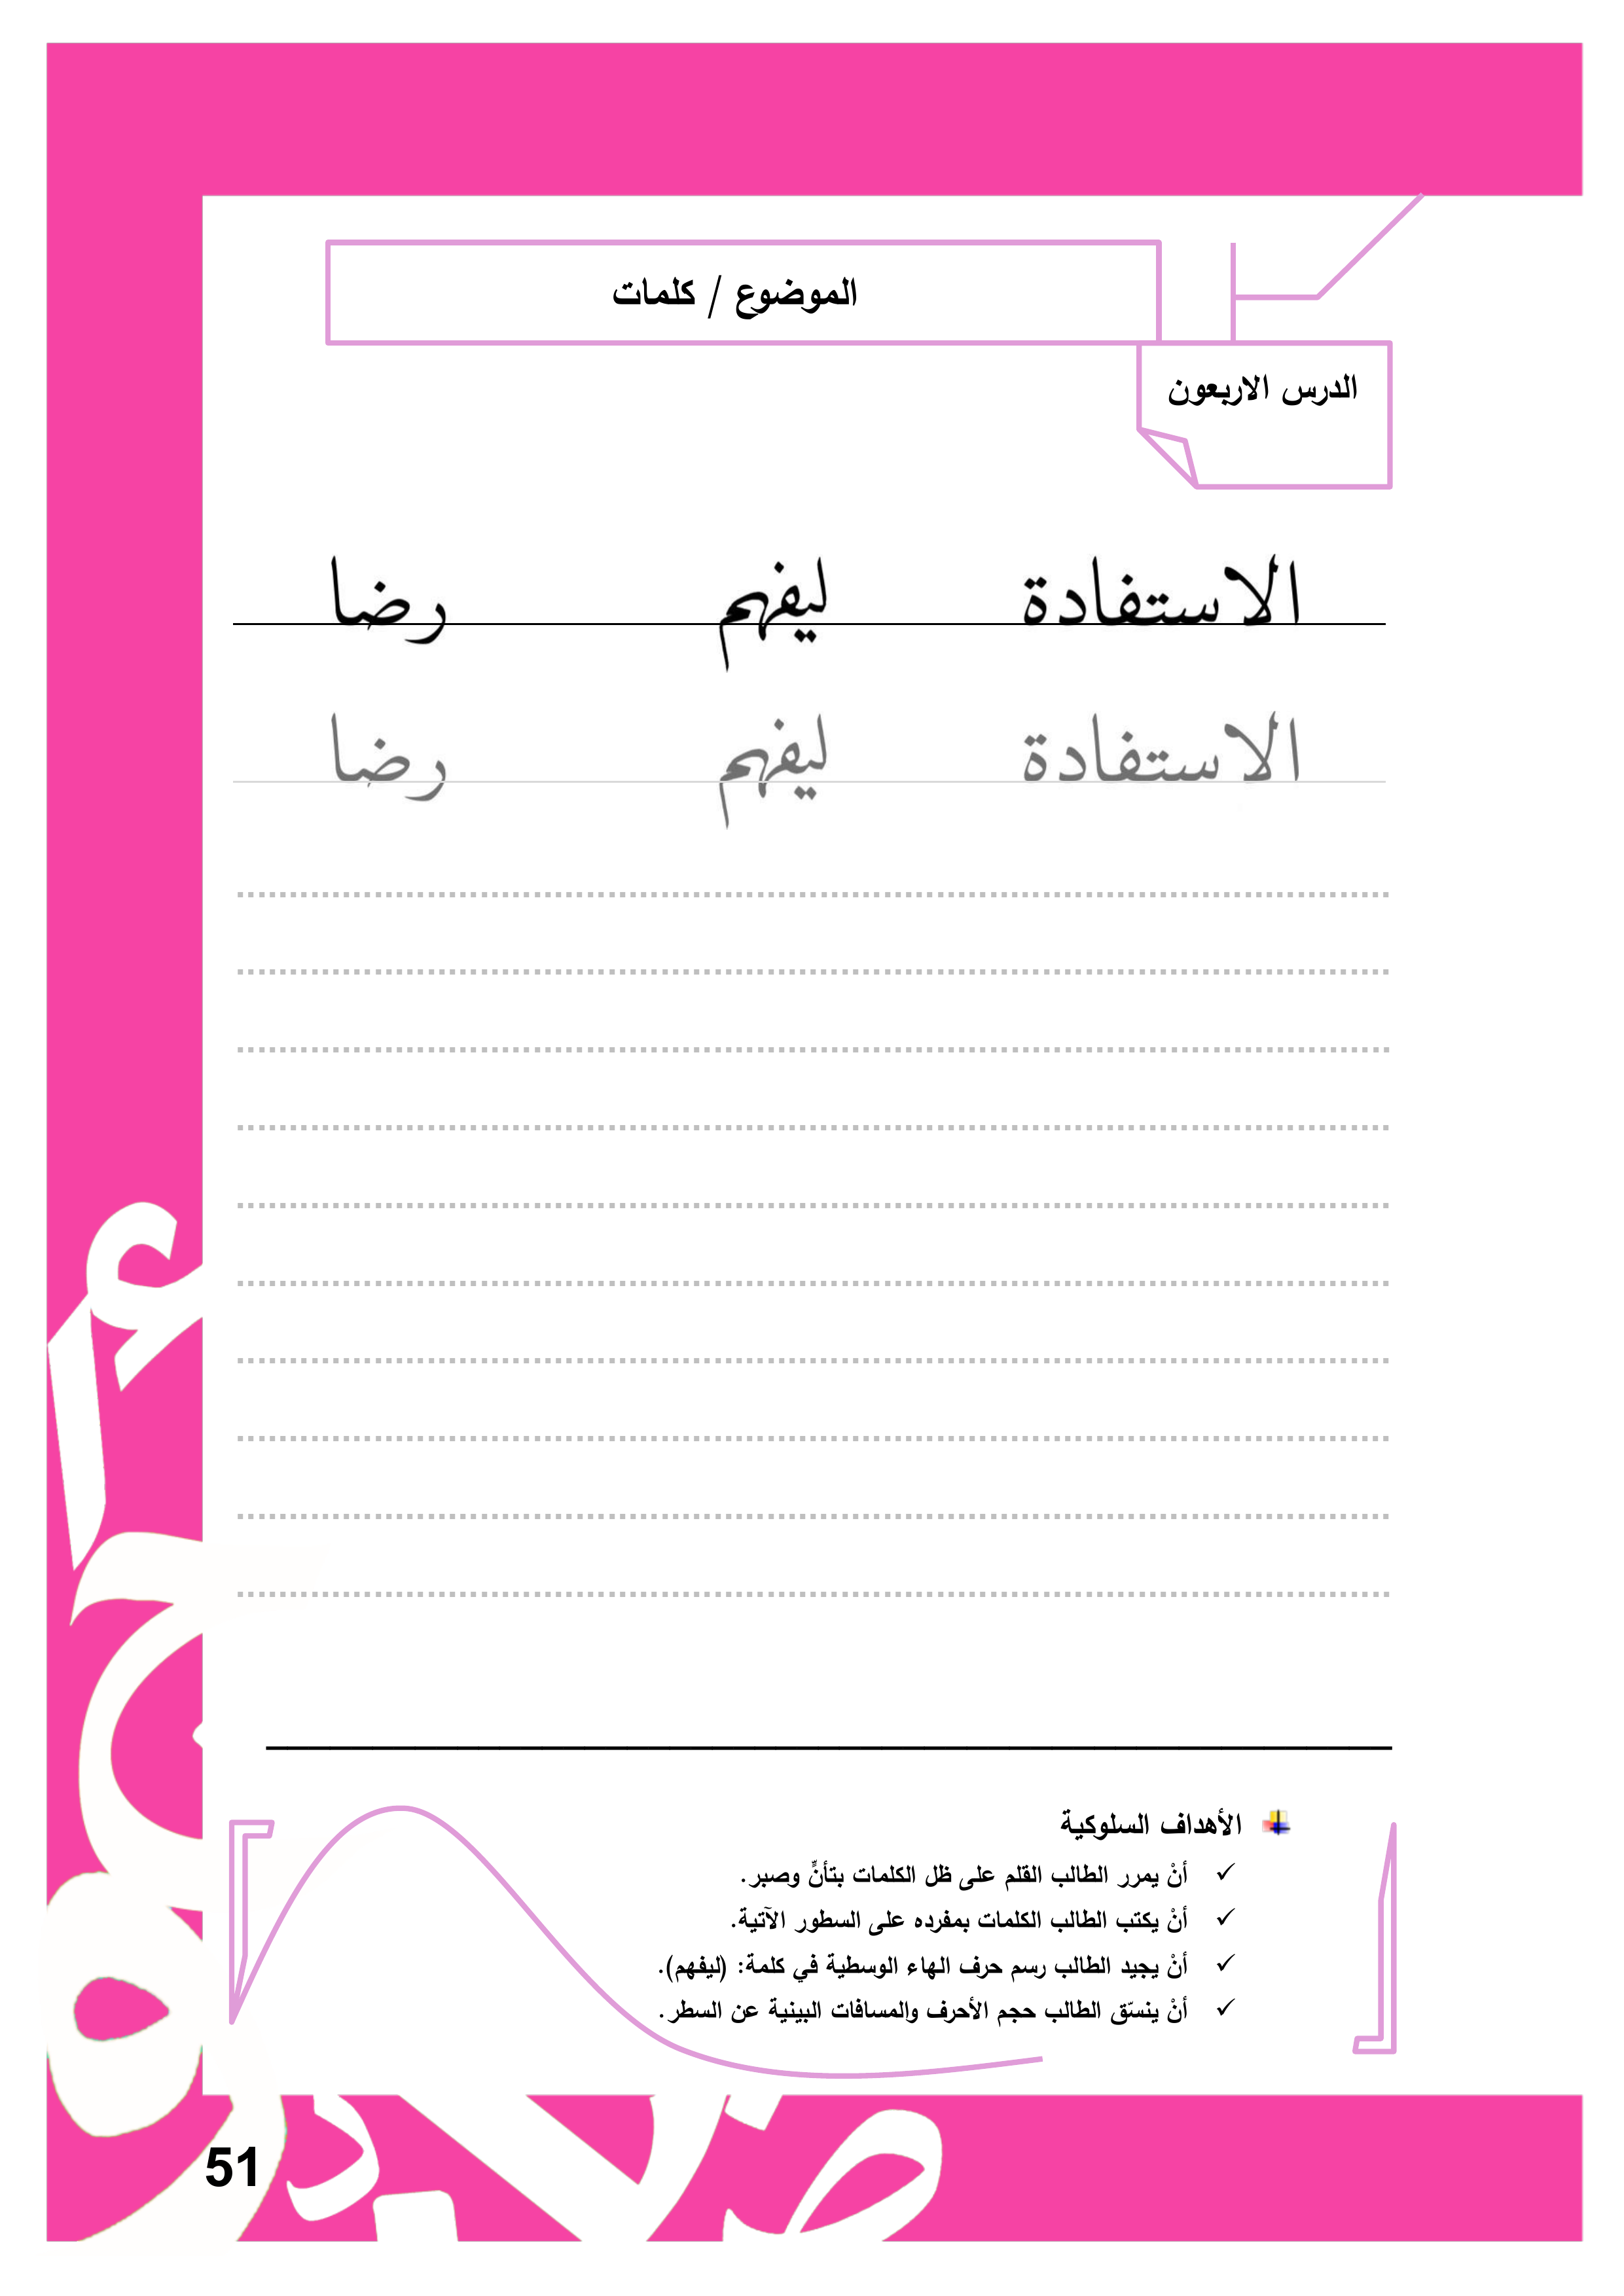 الموضوع / كلمات
الدرس الاربعون
الاستفادة ليفهم رضا
الاستفادة ليفهم رضا
الأهداف السلوكية
أنْ يمرر الطالب القلم على ظل الكلمات بتأنٍّ وصبر.
أنْ يكتب الطالب الكلمات بمفرده على السطور الآتية.
أنْ يجيد الطالب رسم حرف الهاء الوسطية في كلمة: (ليفهم).
أنْ ينسّق الطالب حجم الأحرف والمسافات البينية عن السطر.
51